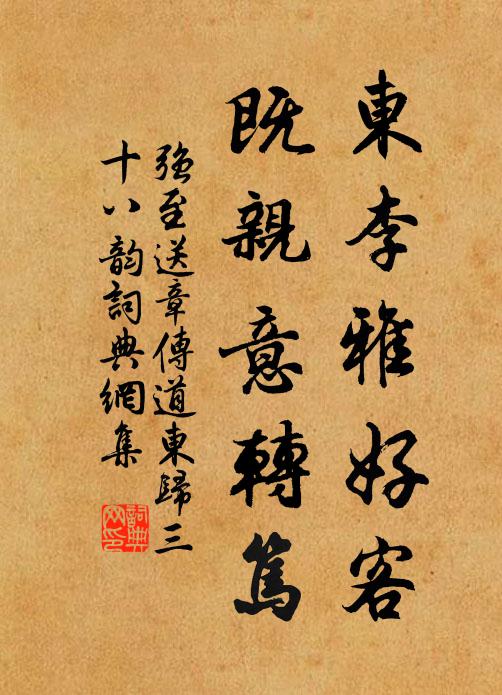 東李雅好客
既親意轉篤
強至送章傳道東歸三
十八韵詞典網集
詞典网印